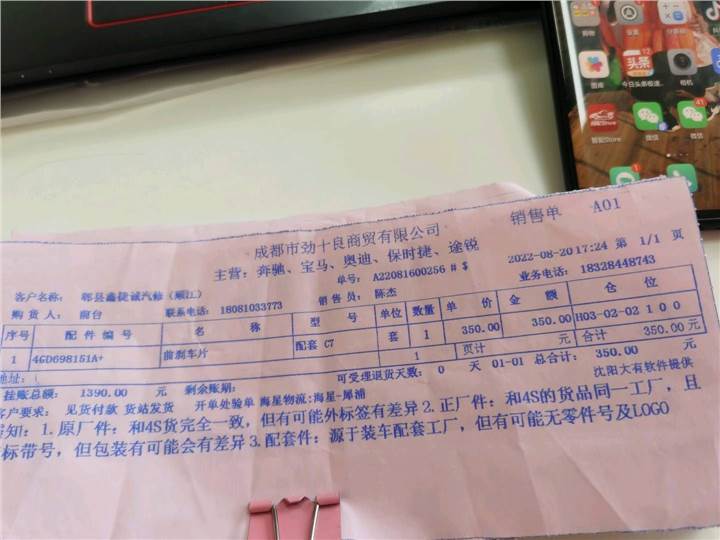 购物
设置
计算器
图库
12
今日头条极速...
相机
智配Store
微信
41
微信
成都市劲十良商贸有限公司 销售单 A01
主营：奔驰、宝马、奥迪、保时捷、途锐 2022-08-20 17:24 第 1/1 页
单号： A22081600256 # $ 业务电话： 18328448743
客户名称： 郫县鑫捷诚汽修（顺江）
购 货 人： 前台 联系电话： 18081033773 销 售 员： 陈杰
序号 配 件 编 号 名 称 型 号 单位 数量 单 价 金 额 仓 位
1 4GD698151A+ 前刹车片 配套 C7 套 1 350.00 350.00 H03-02-02 1 0 0
1 页计 元 合计 350.00 元
地址： 可受理退货天数： 0 天 01-01 总合计： 350.00 元
挂账总额： 1390.00 元 剩余账期： 沈阳大有软件提供
客户要求： 见货付款 货站发货 开单处验单 海星物流:海星-犀浦
告知：1.原厂件：和4S货完全一致，但有可能外标签有差异 2.正厂件：和4S的货品同一工厂，且
标带号，但包装有可能会有差异 3.配套件：源于装车配套工厂，但有可能无零件号及LOGO